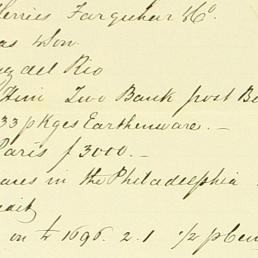 Herries Farquhar & Co.
as & Son
del Rio
Him Two Bank post B
33 pkges Earthenware. –
Paris f 3000. –
ares in the Philadelphia
edit
on £ 1696. 2. 1 1/2 p Cen